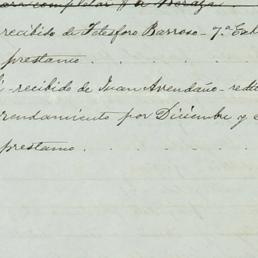 completar
recibido de Telesforo Barroso - 7ª
prestamo . . . .
recibido de Juan Avendaño - 
rendamiento por Diciembre y
prestamo . . . .